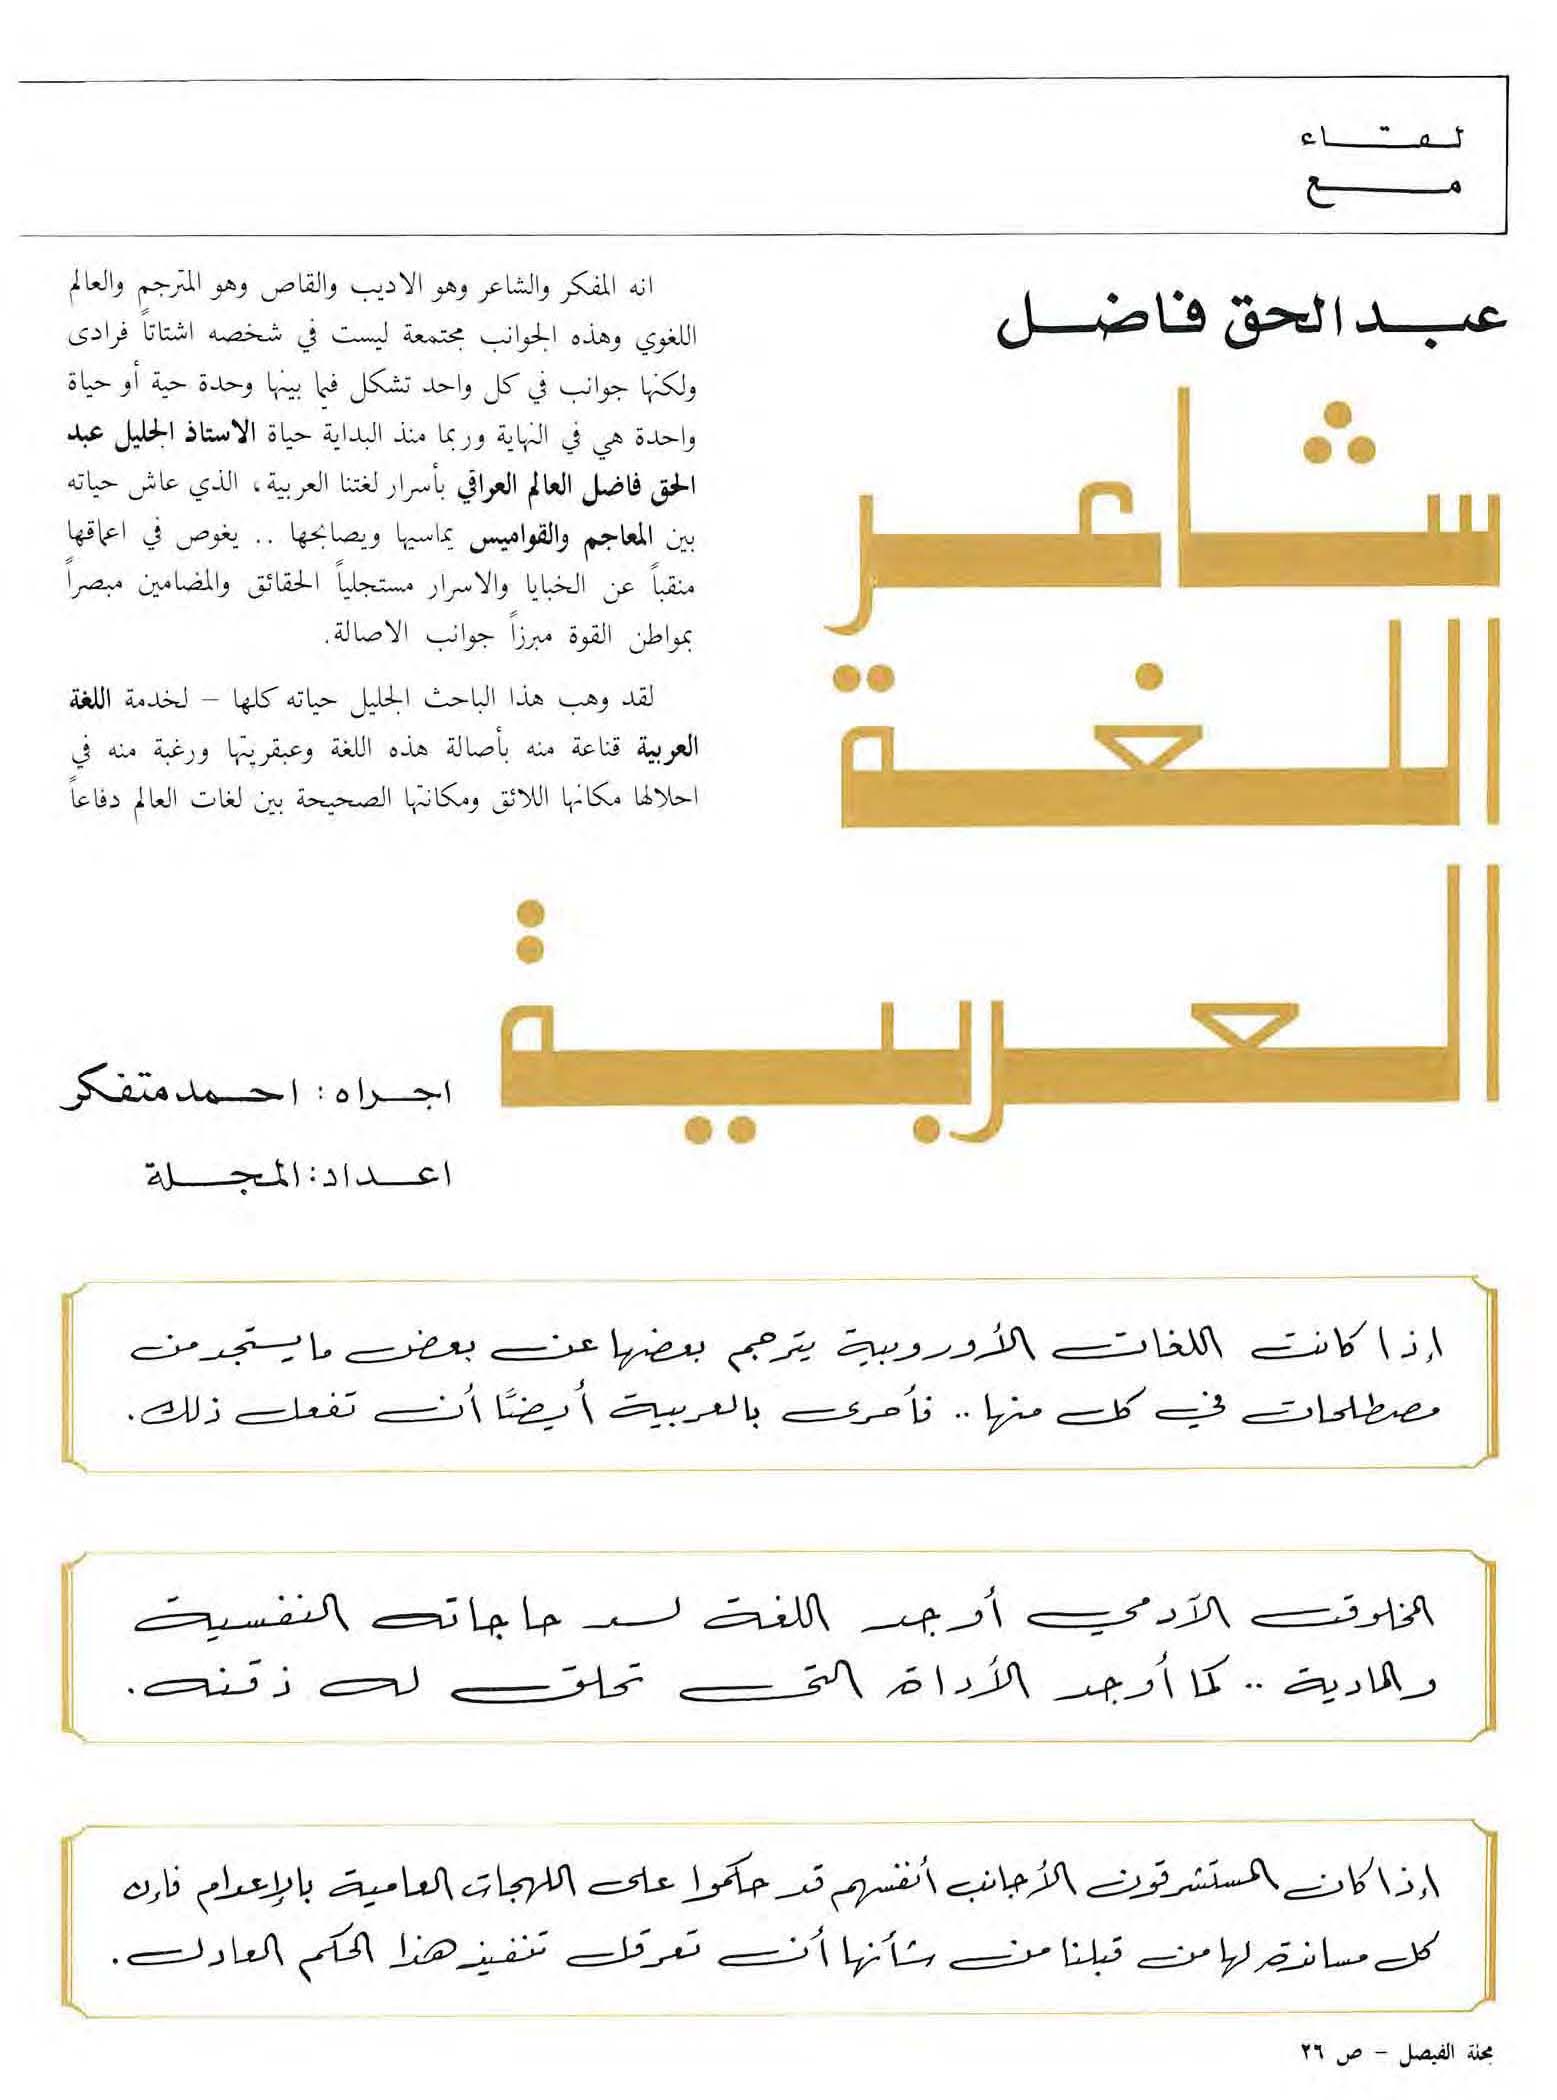 لقاء
مع
عبد الحق فاضل
شاعر
اللغة
العربية
اجراه : احمد متفكر
اعداد : المجلة
انه المفكر والشاعر وهو الاديب والقاص وهو المترجم والعالم
اللغوي وهذه الجوانب مجتمعة ليست في شخصه اشتاتاً فرادى
ولكنها جوانب في كل واحد تشكل فيما بينها وحدة حية أو حياة
واحدة هي في النهاية وربما منذ البداية حياة الاستاذ الجليل عبد
الحق فاضل العالم العراقي بأسرار لغتنا العربية، الذي عاش حياته
بين المعاجم والقواميس يماسيها ويصابحها .. يغوص في اعماقها
منقباً عن الخبايا والاسرار مستجلياً الحقائق والمضامين مبصراً
بمواطن القوة مبرزاً جوانب الاصالة.
لقد وهب هذا الباحث الجليل حياته كلها – لخدمة اللغة
العربية قناعة منه بأصالة هذه اللغة وعبقريتها ورغبة منه في
احلالها مكانها اللائق ومكانتها الصحيحة بين لغات العالم دفاعاً
إذا كانت اللغات الأوروبية يترجم بعضها عن بعض ما يستجد من
مصطلحات في كل منها .. فأحرى بالعربية أيضًا أن تفعل ذلك.
المخلوق الآدمي أوجد اللغة لسد حاجاته النفسية
والمادية .. كما أوجد الأداة التي تحلق له ذقنه.
إذا كان المستشرقون الأجانب أنفسهم قد حكموا على اللهجات العامية بالإعدام فإن
كل مساندة لها من قبلنا من شأنها أن تعرقل تنفيذ هذا الحكم العادل.
مجلة الفيصل – ص ٢٦